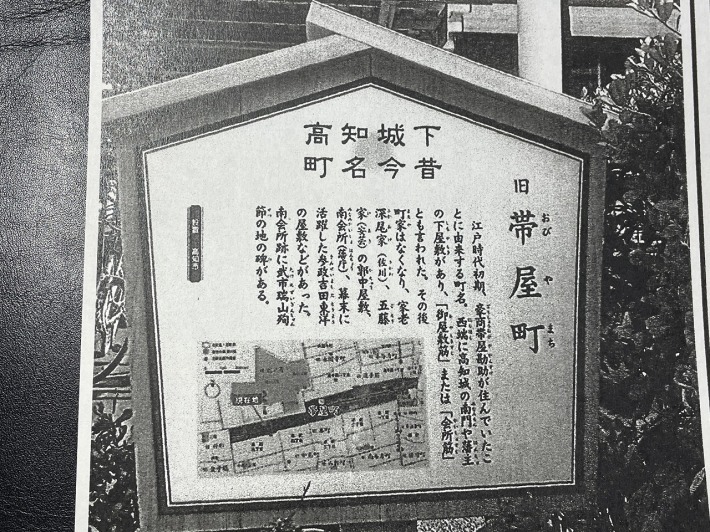 高知城下
町名今昔
旧 帯屋町
おびやまち
江戸時代初期、豪商帯屋勘助が住んでいたこ
とに由来する町名。西端に高知城の南門や藩主
の下屋敷があり、「御屋敷筋」または「会所筋」
とも言われた。その後
町家はなくなり、家老
深尾家(佐川)、五藤
家(安芸)の郭中屋敷、
南会所(藩庁)、幕末に
活躍した参政吉田東洋
の屋敷などがあった。
南会所跡に武市瑞山殉
節の地の碑がある。
設置 高知市
現在地
帯屋町